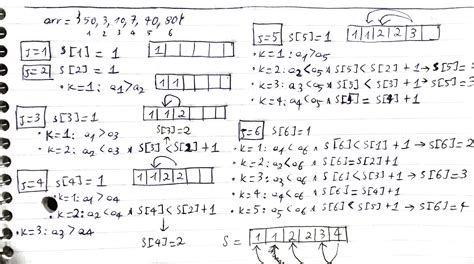 arr = {50, 3, 10, 7, 40, 80}
1 2 3 4 5 6
j=1 S[1] = 1
1
j=2 S[2] = 1
• k=1: a1 > a2
1 1
j=3 S[3] = 1
1 1 2
• k=1: a1 > a3
S[3]=2
• k=2: a2 < a3 ∧ S[3] < S[2]+1
1 1 2 2
j=4 S[4] = 1
• k=1: a1 > a4
• k=2: a2 < a4 ∧ S[4] < S[2]+1
• k=3: a3 > a4
S[4]=2
1 1 2 2 3
j=5 S[5]=1
• k=1: a1 > a5
• k=2: a2 < a5 ∧ S[5] < S[2]+1 → S[5]=
• k=3: a3 < a5 ∧ S[5] < S[3]+1 → S[5]=3
• k=4: a4 < a5 ∧ S[5] = S[4]+1
j=6 S[6]=1
• k=1: a1 < a6 ∧ S[6] < S[1]+1 → S[6]=2
• k=2: a2 < a6 ∧ S[6]=S[2]+1
• k=3: a3 < a6 ∧ S[6] < S[3]+1 → S[6]=3
• k=4: a4 < a6 ∧ S[6] = S[4]+1
• k=5: a5 < a6 ∧ S[6] < S[5]+1 → S[6]=4
S = 1 1 2 2 3 4